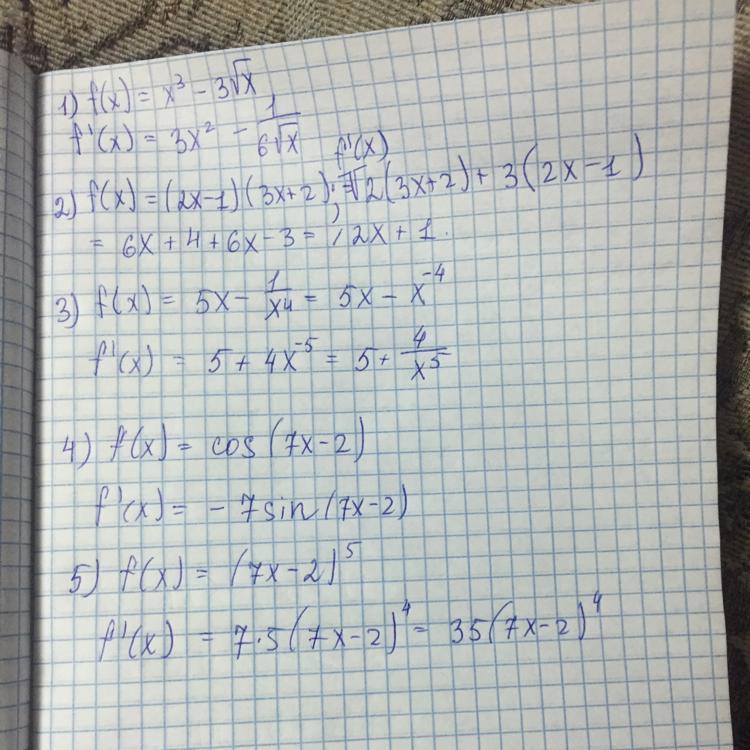 1) f(x) = x³ - 3√x
f'(x) = 3x² - 1/(6√x)
2) f(x) = (2x-1)(3x+2); f'(x) = 2(3x+2) + 3(2x-1)
= 6x + 4 + 6x - 3 = 12x + 1.
3) f(x) = 5x - 1/x⁴ = 5x - x⁻⁴
f'(x) = 5 + 4x⁻⁵ = 5 + 4/x⁵
4) f(x) = cos(7x-2)
f'(x) = - 7sin(7x-2)
5) f(x) = (7x-2)⁵
f'(x) = 7·5(7x-2)⁴ = 35(7x-2)⁴